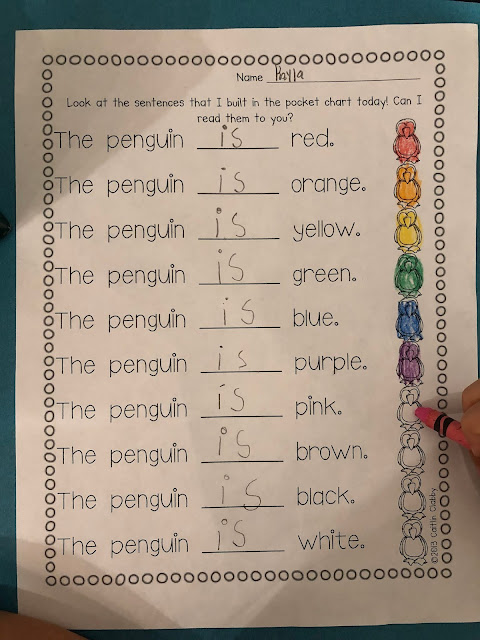 Name Kayla
Look at the sentences that I built in the pocket chart today! Can I
read them to you?
The penguin is red.
The penguin is orange.
The penguin is yellow.
The penguin is green.
The penguin is blue.
The penguin is purple.
The penguin is pink.
The penguin is brown.
The penguin is black.
The penguin is white.
©2013 Caitlin Clabby